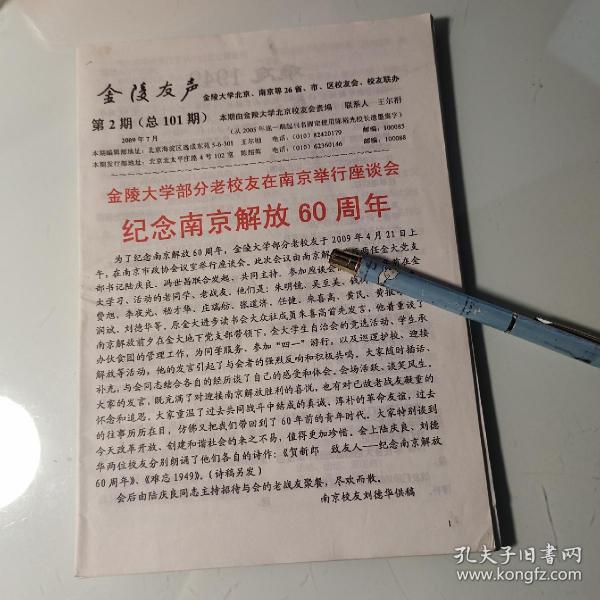 金陵友声
金陵大学北京、南京等26省、市、区校友会、校友联办
第2期（总101期）
本期由金陵大学北京校友会责编 联系人 王尔相
2009年7月
（从2005年第一期起刊名固定使用陈裕光校长遗墨集字）
本期编辑部地址：北京海淀区逸成东苑5-6-301 王尔相 电话：(010) 82420179 邮编：100085
本期发行部地址：北京北太平庄路4号102室 陈绍英 电话：(010) 62360146 邮编：100088
金陵大学部分老校友在南京举行座谈会
纪念南京解放60周年
为了纪念南京解放60周年，金陵大学部分老校友于2009年4月21日上
午，在南京市政协会议室举行座谈会。此次会议由南京解放前两任金大党支
部书记陆庆良、冯世昌联合发起、共同主持。参加座谈会
大学习、活动的老同学、老战友，他们是：朱明镜、吴至美、钱
费旭、李夜光、嵇才华、庄瑞舫、张道济、任健、朱喜高、黄民、黄
润斌、刘德华等，原金大进步读书会大众社成员朱喜高首先发言，他着重谈了
南京解放前夕在金大地下党支部带领下，金大学生自治会的竞选活动、学生承
办伙食团的管理工作，为同学服务，参加“四一”游行，以及巡逻护校、迎接
解放等活动，他的发言引起了与会者的强烈反响和积极共鸣，大家随时插话、
补充，与会同志结合各自的经历谈了自己的感受和体会。会场活跃、谈笑风生。
大家的发言，既充满了对迎接南京解放胜利的喜悦，也有对已故老战友献重的
怀念和追思。大家重温了过去共同战斗中结成的真诚、淳朴的革命友谊，过去
的往事历历在目，仿佛又把我们带回到了60年前的青年时代。大家特别谈到
今天改革开放、创建和谐社会的来之不易，值得更加珍惜。会上陆庆良、刘德
华两位校友分别朗诵了他们各自的诗作：《贺新郎 致友人——纪念南京解放
60周年》、《难忘1949》。（诗稿另发）
会后由陆庆良同志主持招待与会的老战友聚餐，尽欢而散。
南京校友刘德华供稿
1
孔夫子旧书网
www.kongfz.com